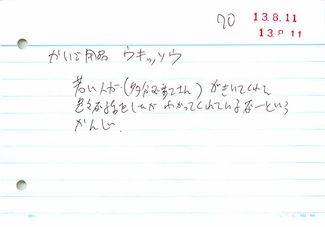 70
13.8.11
13.8.11
かいご用品 ウキッソウ
若い人が(多分
がきいてくれて
色々お話をしたが わかってくれているなーという
かんじ。